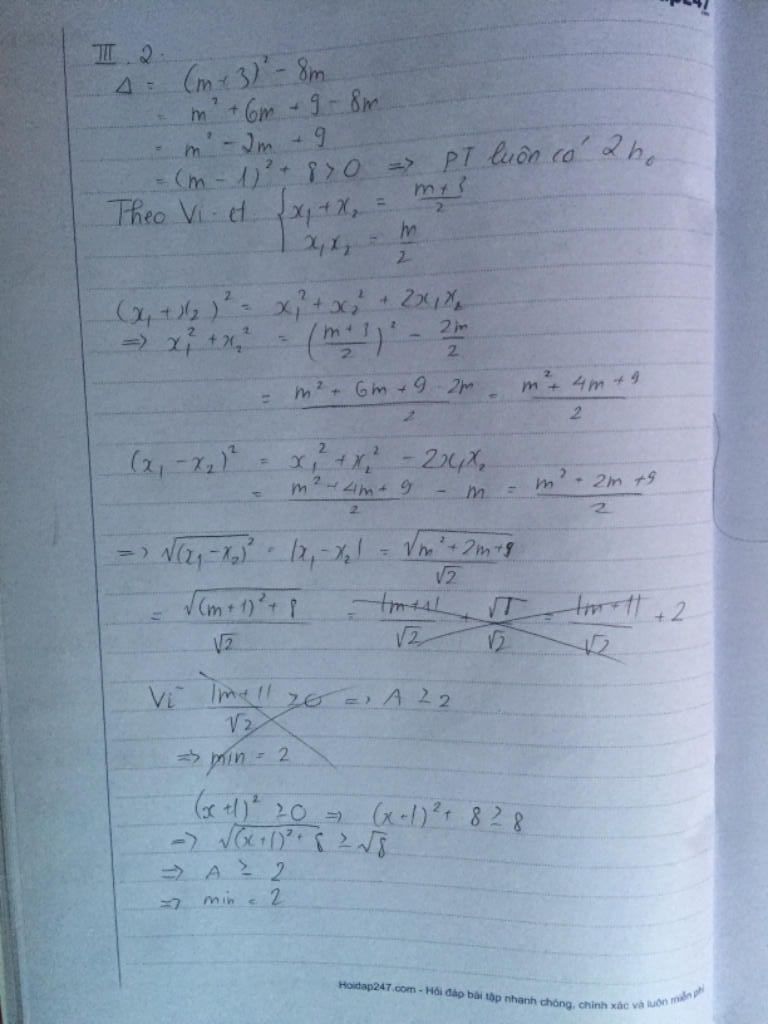 III. 2.
Δ = (m+3)² - 8m
= m² + 6m + 9 - 8m
= m² - 2m + 9
= (m - 1)² + 8 > 0 => PT luôn có 2 no
Theo Vi-et { x₁ + x₂ = (m+3)/2
x₁x₂ = m/2
(x₁ + x₂)² = x₁² + x₂² + 2x₁x₂
=> x₁² + x₂² = ((m+3)/2)² - 2m/2
= (m² + 6m + 9 - 2m)/2 = (m² + 4m + 9)/2
(x₁ - x₂)² = x₁² + x₂² - 2x₁x₂
= (m² + 4m + 9)/2 - m = (m² + 2m + 9)/2
=> √(x₁ - x₂)² = |x₁ - x₂| = √(m² + 2m + 9)/√2
= √((m+1)² + 8)/√2 = |m+1|/√2 + √8/√2 = |m+1|/√2 + 2
Vì |m+1|/√2 ≥ 0 => A ≥ 2
=> min = 2
(x+1)² ≥ 0 => (x+1)² + 8 ≥ 8
=> √((x+1)² + 8) ≥ √8
=> A ≥ 2
=> min = 2
Hoidap247.com - Hỏi đáp bài tập nhanh chóng, chính xác và luôn miễn phí